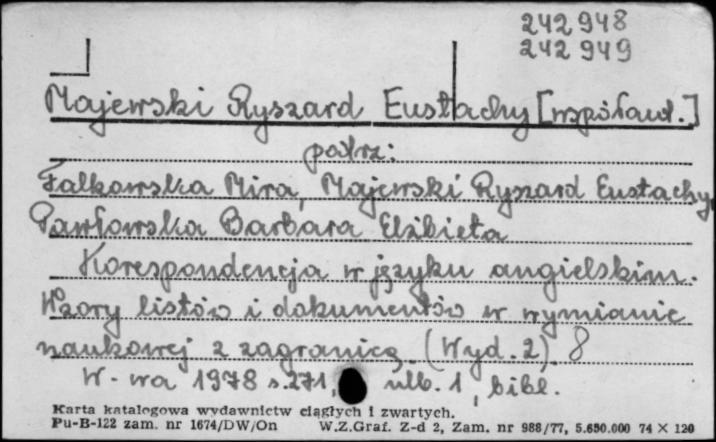 242948
242949
Majewski Ryszard Eustachy [współaut.]
patrz:
Fałkowska Mira, Majewski Ryszard Eustachy,
Pawłowska Barbara Elżbieta
Korespondencja w języku angielskim.
Wzory listów i dokumentów w wymianie
naukowej z zagranicą. (Wyd. 2) 8
W-wa 1978 s. 271, nlb. 1, bibl.
Karta katalogowa wydawnictw ciągłych i zwartych.
Pu-B-122 zam. nr 1674/DW/On W.Z.Graf. Z-d 2, Zam. nr 988/77, 5.650.000 74 × 120